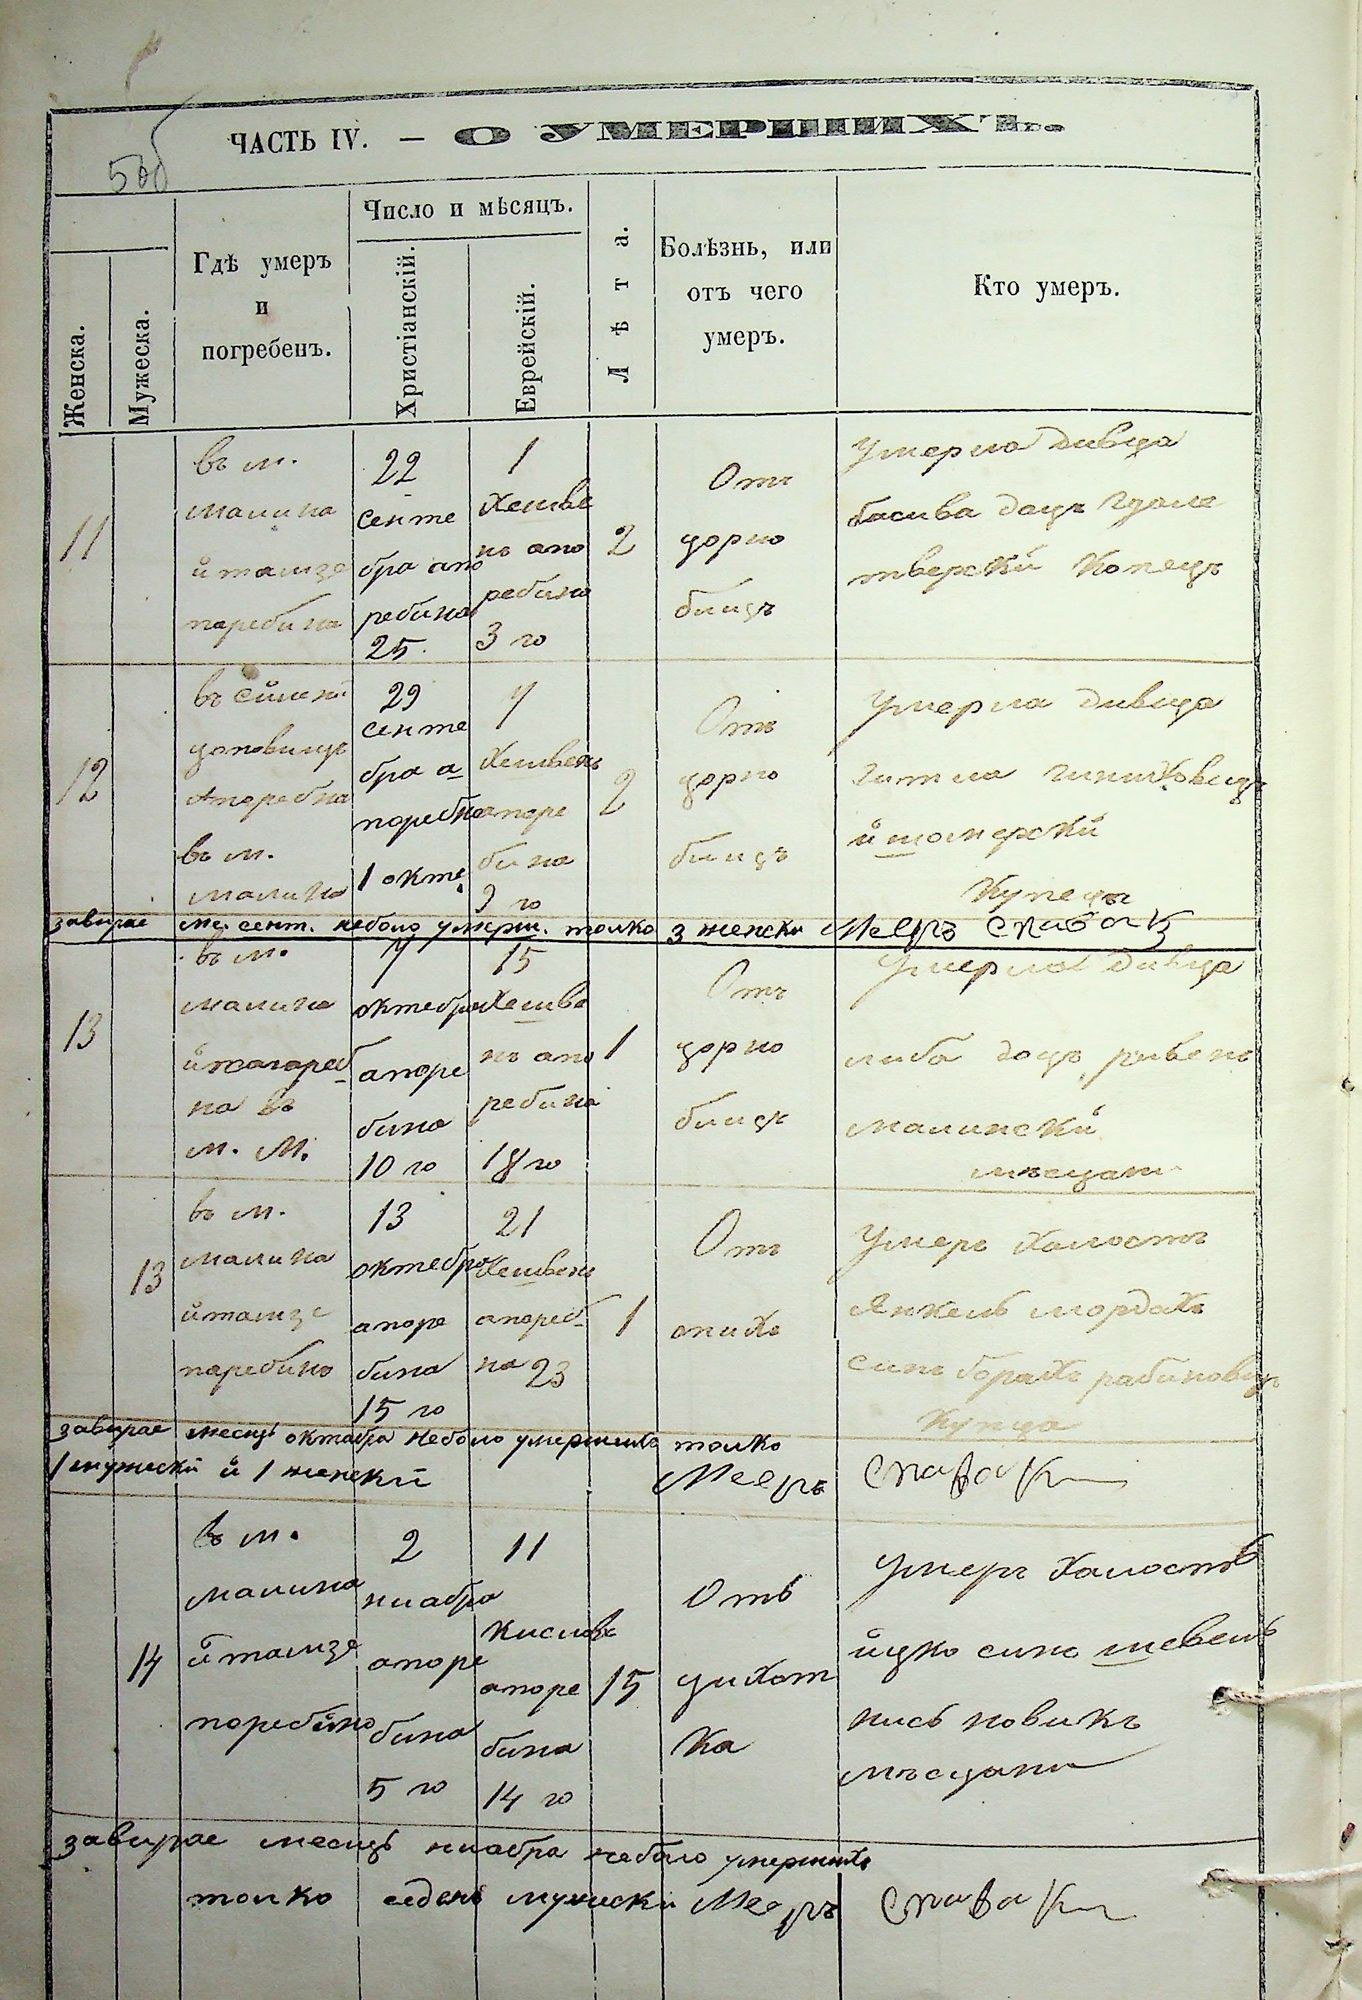 ЧАСТЬ IV. — О УМЕРШИХЪ.
Женска.
Мужеска.
Гдѣ умеръ
и
погребенъ.
Число и мѣсяцъ.
Христіанскій.
Еврейскій.
Лѣта.
Болѣзнь, или
отъ чего
умеръ.
Кто умеръ.
11
въ м.
малина
итамже
поребина
22
сенте
бра апо
ребина
25.
1
Хешве
нъ апо
ребина
3 го
2
Отъ
горло
Умерла дивица
басива доцъ
тверски Копецъ
12
въ
въ м.
малина
29
сенте
бра а
поребно
1 окте
7
Хешвень
апоре
бина
9 го
2
Отъ
горло
Умерла дивица
Гитла
Купецъ
завирае ме. сент. неболо умерш. толко 3 женски Мееръ Спивак
13
въ м.
малина
на въ
м. М.
7
октебра
апоре
бина
10 го
15
Хешве
нъ апо
ребина
18 го
1
Отъ
горло
Умерла дивица
либа доцъ рувень
малински
мъщани
13
въ м.
малина
итамже
паребино
13
октебра
апоре
бина
15 го
21
Хешвень
апореб
на 23
1
Отъ
опихъ
Умеръ Халостъ
Янкель мордахъ
синъ борахъ рабиновицъ
Купца
завирае месяцъ октабра неболо умершихъ толко
1 мужески и 1 женски Мееръ Спивак
14
въ м.
малина
итамже
поребино
2
ниабра
апоре
бина
5 го
11
Кислевъ
апоре
бина
14 го
15
Отъ
цихот
ка
Умеръ Халостъ
ицко синъ шевель
новикъ
мъщани
завирае месяцъ ниабра неболо умершихъ
толко едень мужески Мееръ Спивак